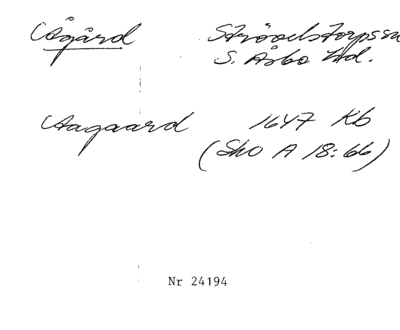 Ågård Strövelstorps sn
S. Åsbo hd.
Aagaard 1647 Kb
(Sko A 18:66)
Nr 24194